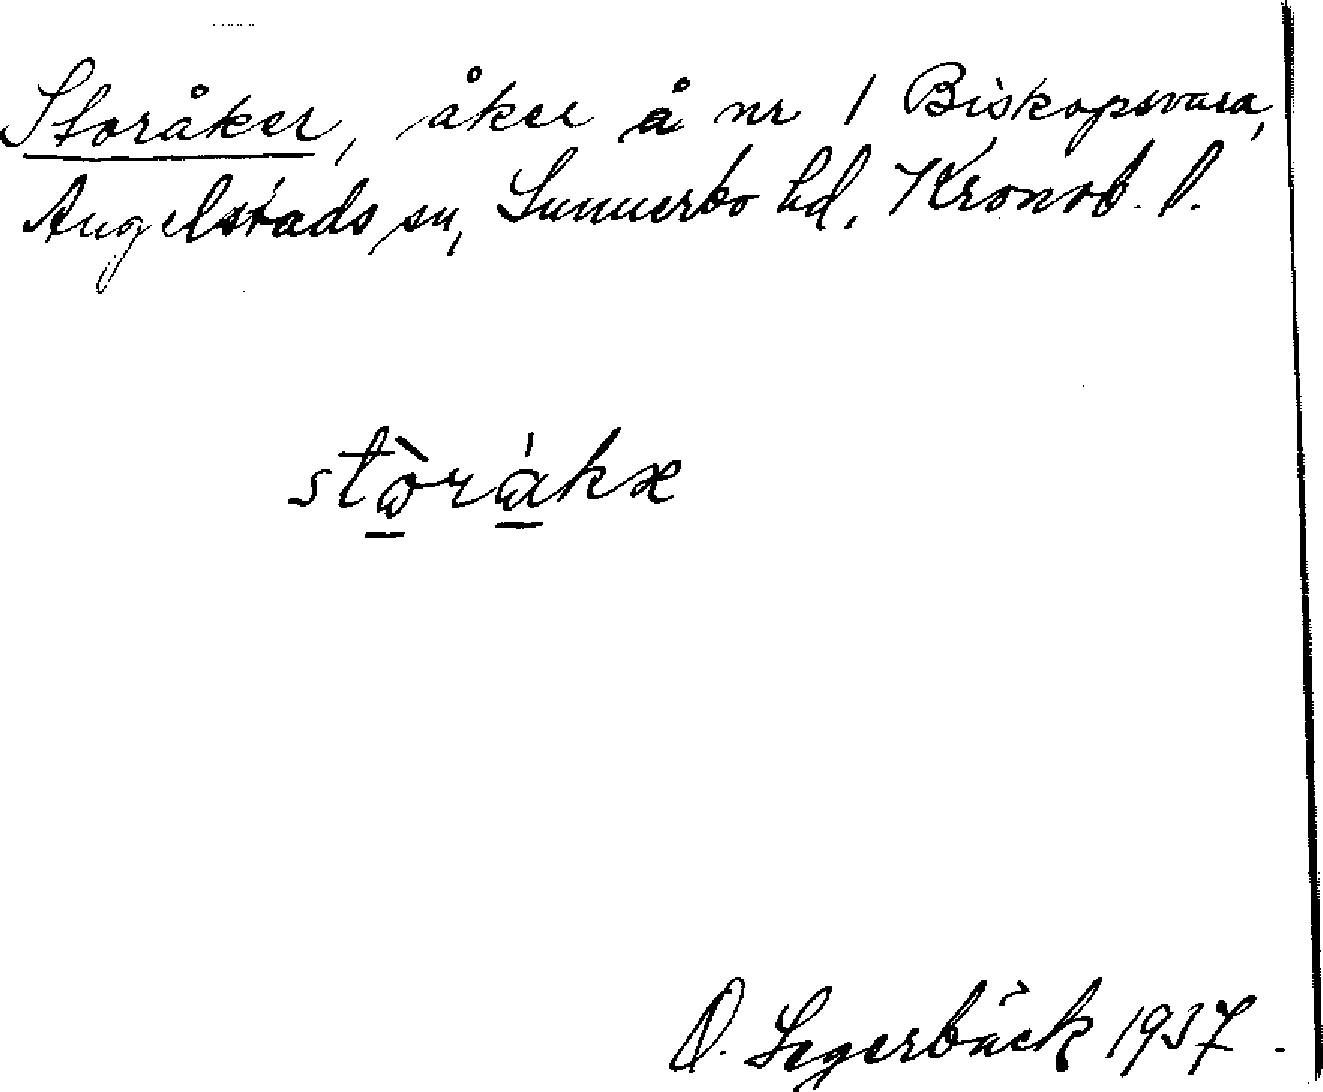 Storåker, åker å nr 1 Biskopsvara,
Angelstads sn, Sunnerbo hd, Kronob. l.
stòrákx
O. Segerbäck 1937.